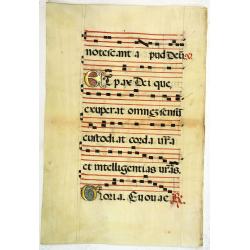 notescant a pud Deū
Et pax Dei que,
exuperat omnē sensū
custodiat corda vr̄a
et intelligentias vr̄as.
Gloria. Euouae. R